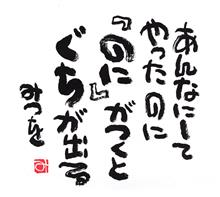 あんなにして
やったのに
『のに』がつくと
ぐちが出る
みつを